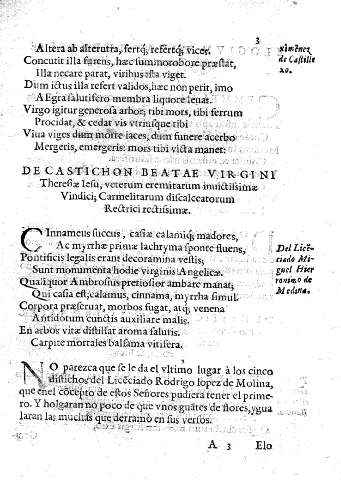 3
Altera ab alterutra, fertq́; refertq́; vices.
Concutit illa furens, hæc summo robore præstat,
Illa necare parat, viribus ista viget.
Dum ictus illa refert validos, hæc non perit, imo
A Egra salutifero membra liquore lenat.
Virgo igitur generosa arbor, tibi mors, tibi ferrum
Procidat, & cedat vis vtriusque tibi
Viua viges dum morte iaces, dum funere acerbo
Mergeris, emergeris: mors tibi victa manet:
ximenez
de Castille
xo.
DECASTICHON BEATAE VIRGINI
Theresiæ Iesu, veterum eremitarum inuictissimæ
Vindici; Carmelitarum discalceatorum
Rectrici rectissimæ.
CInnameus succus, casiæ calamiq́; madores,
Ac myrrhæ primæ lachryma sponte fluens,
Pontificis legalis erant decoramina vestis;
Sunt monumenta hodie virginis Angelicæ.
Qualiquor Ambrosius pretiosior ambare manat;
Qui casia est, calamus, cinnama, myrrha simul.
Corpora præseruat, morbos fugat, atq́; venena
Antidotum cunctis auxiliare malis.
En arbos vitæ distilat aroma salutis.
Carpite mortales balsama vitifera.
Del Licẽ
ciado Mi-
guel Hier
ronimo de
Medina.
NO parezca que se le da el vltimo lugar à los cinco
distichos, del Licẽciado Rodrigo lopez de Molina,
que enel cõcepto de estos Señores pudiera tener el prime-
ro. Y holgaran no poco de que vnos guãtes de flores, ygua
laran las muchas que derramò en sus versos.
A 3 Elo